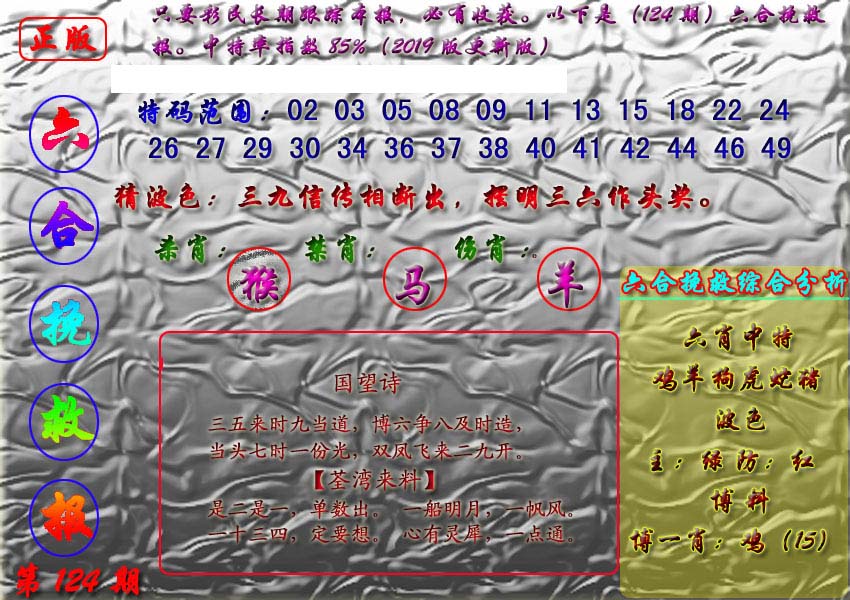 正版
只要彩民长期跟踪本报，必有收获。以下是（124期）六合挽救
报。中特率指数85%（2019版更新版）
六
合
挽
救
报
第124期
特码范围：02 03 05 08 09 11 13 15 18 22 24
26 27 29 30 34 36 37 38 40 41 42 44 46 49
猜波色：三九信传相断出，摆明三六作头奖。
杀肖：猴 禁肖：马 伤肖：羊
国望诗
三五来时九当道，博六争八及时造，
当头七时一份光，双凤飞来二九开。
【荃湾来料】
是二是一，单数出。 一船明月，一帆风。
一十三四，定要想。 心有灵犀，一点通。
六合挽救综合分析
六肖中特
鸡羊狗虎蛇猪
波色
主：绿防：红
博料
博一肖：鸡（15）